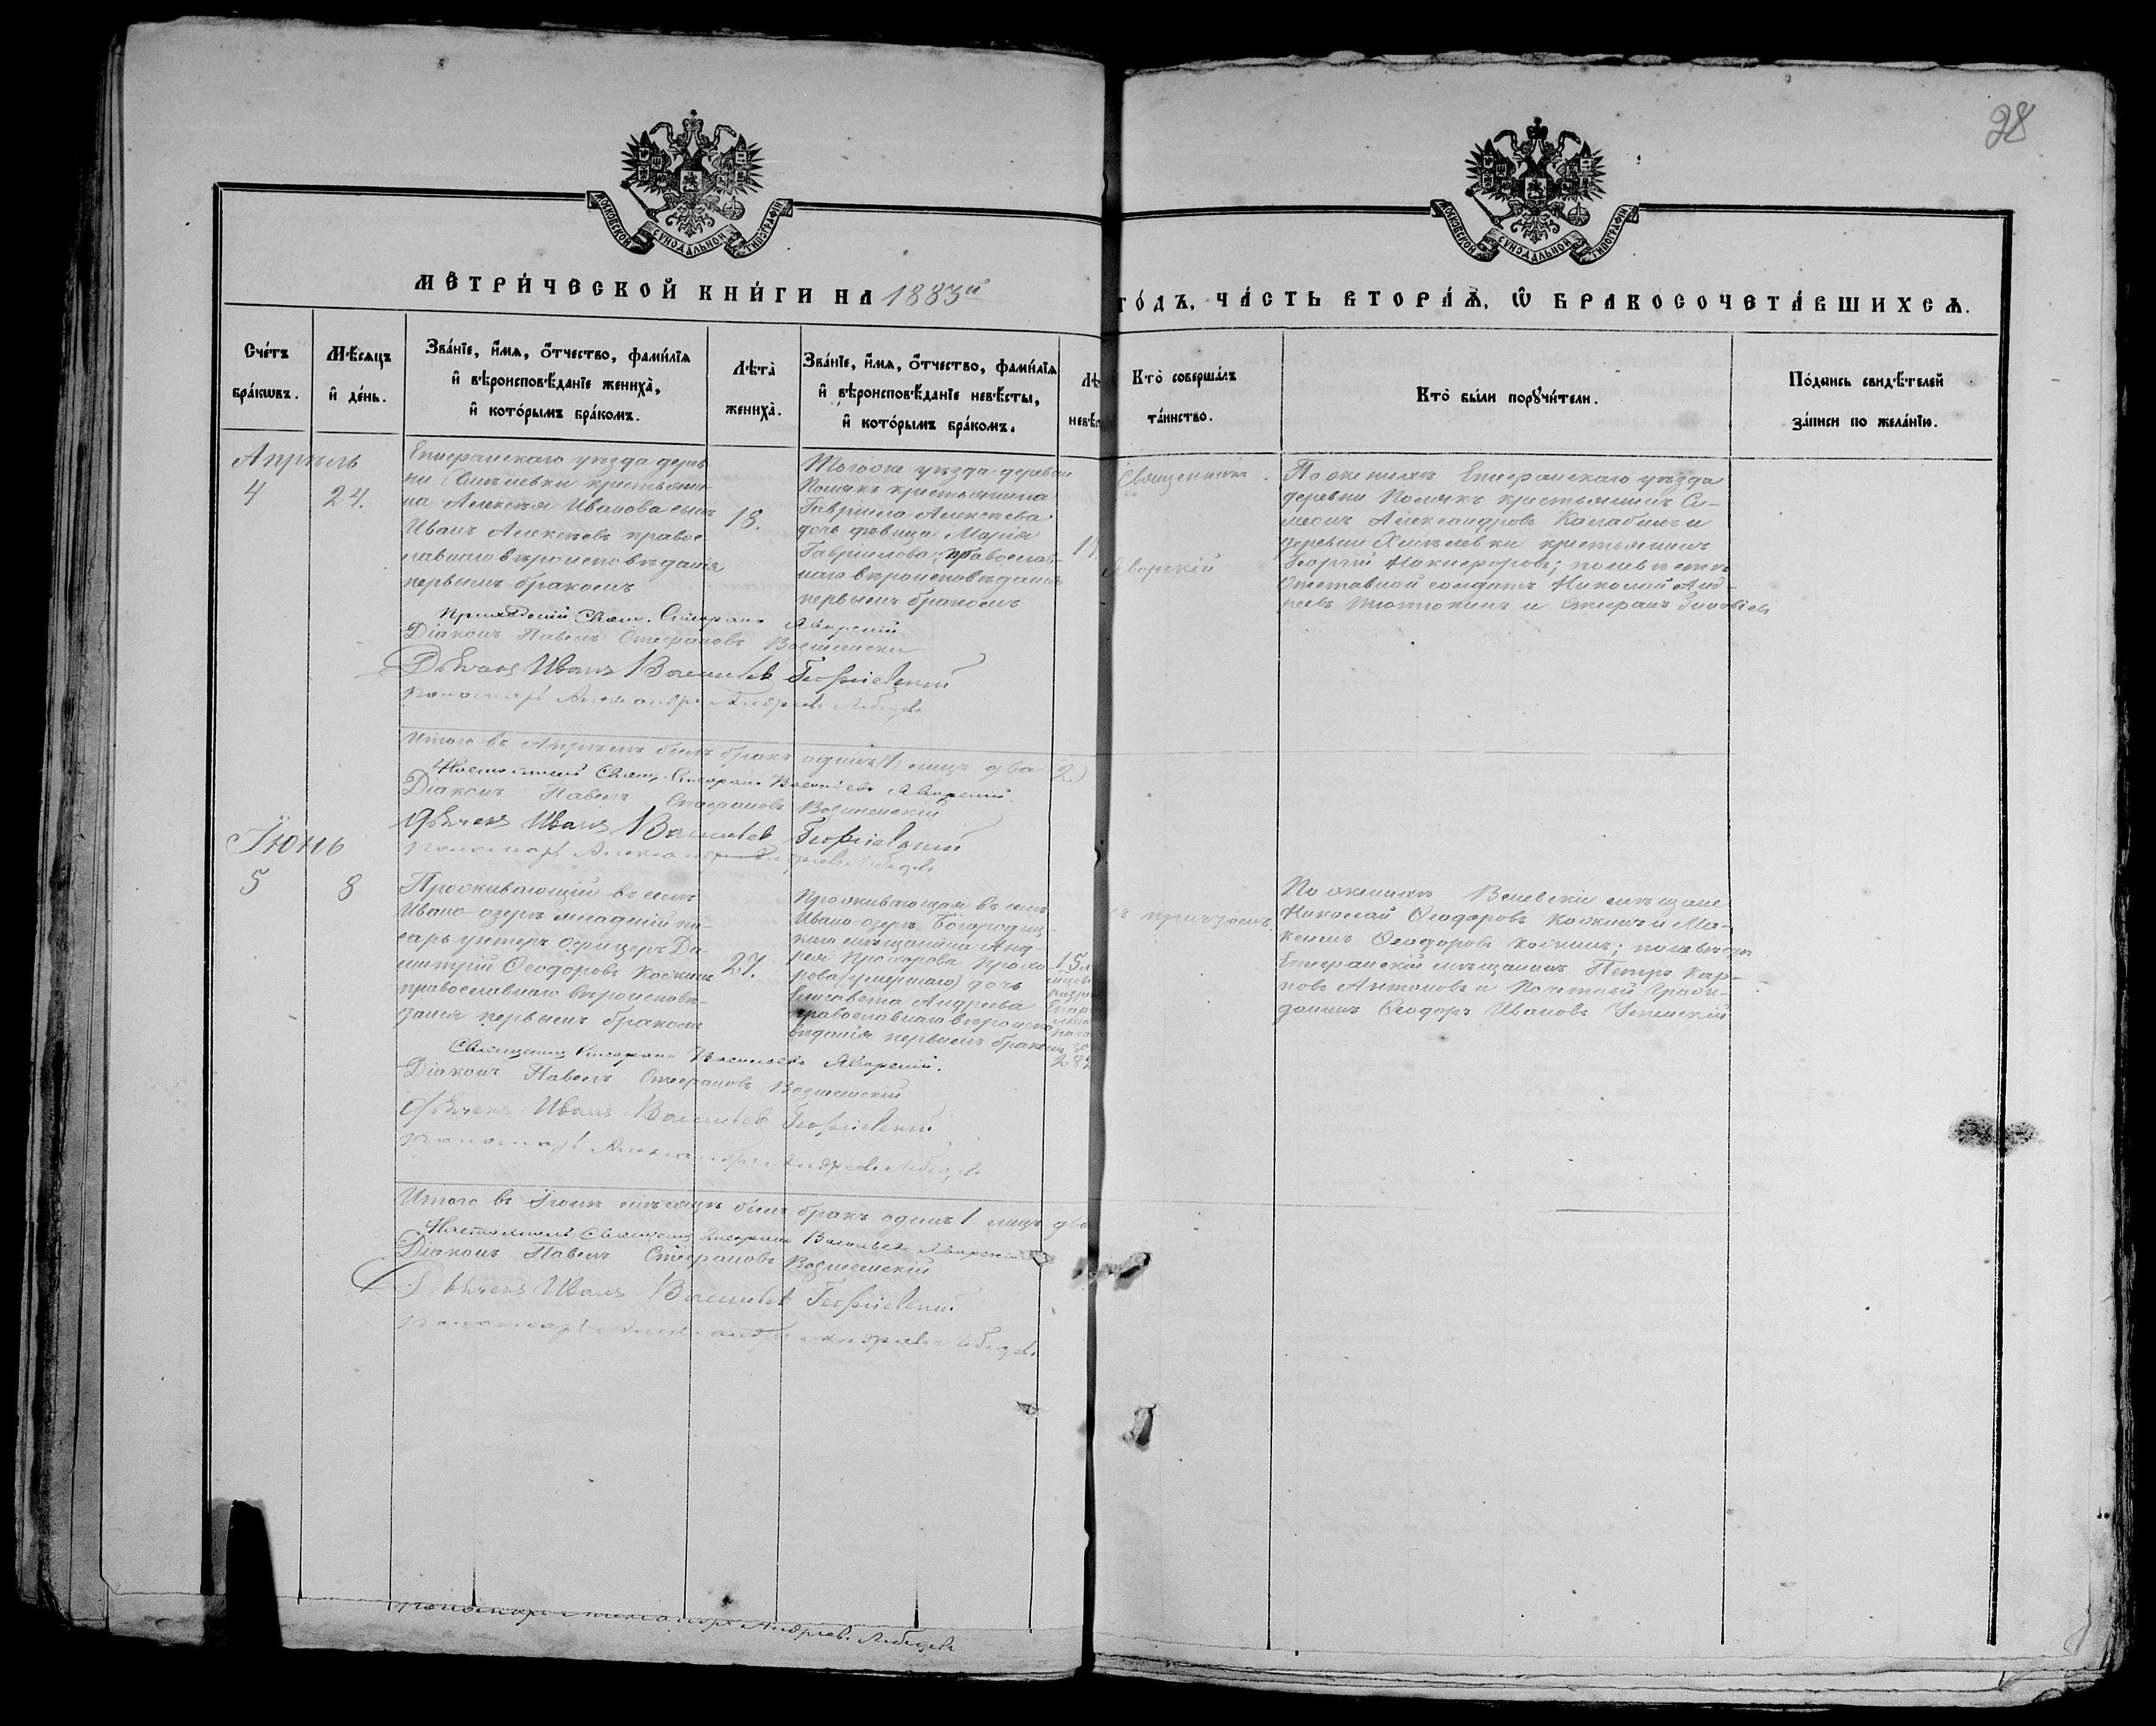 28
МОСКОВСКОЙ СѴНОДАЛЬНОЙ ТИПОГРАФІИ
МОСКОВСКОЙ СѴНОДАЛЬНОЙ ТИПОГРАФІИ
МЕТРИ́ЧЕСКОЙ КНИ́ГИ НА 1883й
ГО́ДЪ, ЧА́СТЬ ВТОРА́Ѧ, Ѡ҆ БРАКОСОЧЕТА́ВШИХСѦ.
Сче́тъ
бра́кѡвъ.
Мѣ́сяцъ
и҆ де́нь.
Зва́нїе, и҆́мѧ, ѻ҆́тчество, фами́лїѧ
и҆ вѣроисповѣ́данїе жениха̀,
и҆ кото́рымъ бра́комъ.
Лѣта̀
жениха̀.
Зва́нїе, и҆́мѧ, ѻ҆́тчество, фами́лїѧ
и҆ вѣроисповѣ́данїе невѣ́сты,
и҆ кото́рымъ бра́комъ.
Лѣ
невѣ́с
Кто̀ соверша́лъ
та́инство.
Кто̀ бы́ли порꙋчи́тели.
По́дпись свидѣ́телей
за́писи по жела́нїю.
Апрѣль
4
24.
Епифанскаго уѣзда дерев
ни крестьяни
на Алексѣя Иванова сынъ
Иванъ Алексѣевъ право
славнаго вѣроисповѣданія
первымъ бракомъ
18.
Тогоже уѣзда деревни
крестьянина
Гавріила Алексѣева
дочь дѣвица Марія
Гавріилова; православ
наго вѣроисповѣданія
первымъ бракомъ
Священникъ
Яворскій
По женихѣ Епифанскаго уѣзда
деревни крестьянинъ Си-
меонъ Александровъ и
деревни крестьянинъ
Георгій Никифоровъ; по невѣстѣ
Отставной солдатъ Николай Анд
реевъ и Стефанъ
Приходскій Свящ. Стефанъ Яворскій
Діаконъ Павелъ Стефановъ Вознесенскій
Дьячекъ Иванъ Васильевъ Георгіевскій
пономарь Александръ Андреевъ Лебедевъ
Итого въ Апрѣлѣ былъ бракъ одинъ (1) лицъ два 2)
Настоятель Свящ. Стефанъ Васильевъ Яворскій
Діаконъ Павелъ Стефановъ Вознесенскій
Дьячекъ Иванъ Васильевъ Георгіевскій
пономарь Александръ Андреевъ Лебедевъ
Іюнь
5
8
Проживающій въ селѣ
Ивано-озерѣ младшій пи-
сарь унтеръ офицеръ Ди-
митрій Ѳеодоровъ
православнаго вѣроисповѣ-
данія первымъ бракомъ
27.
Проживающая въ селѣ
Ивано-озерѣ Богородиц-
каго мѣщанина Анд-
рея Прохорова Прохо-
рова (умершаго) дочь
Елисавета Андреева
православнаго вѣроиспо
вѣданія первымъ бракомъ
15
съ причтомъ.
По женихѣ Веневскіе мѣщане
Николай Ѳеодоровъ и Ма-
Ѳеодоровъ; по невѣстѣ
Епифанскій мѣщанинъ Петръ Кар-
повъ Антоновъ и Почетный Граж-
данинъ Ѳеодоръ Ивановъ Успенскій
Священникъ Стефанъ Васильевъ Яворскій.
Діаконъ Павелъ Стефановъ Вознесенскій
Дьячекъ Иванъ Васильевъ Георгіевскій
пономарь Александръ Андреевъ Лебедевъ
Итого въ Іюнѣ мѣсяцѣ былъ бракъ одинъ 1 лицъ два
Настоятель Священникъ Стефанъ Васильевъ Яворскій
Діаконъ Павелъ Стефановъ Вознесенскій
Дьячекъ Иванъ Васильевъ Георгіевскій
пономарь Александръ Андреевъ Лебедевъ
пономарь Александръ Андреевъ Лебедевъ